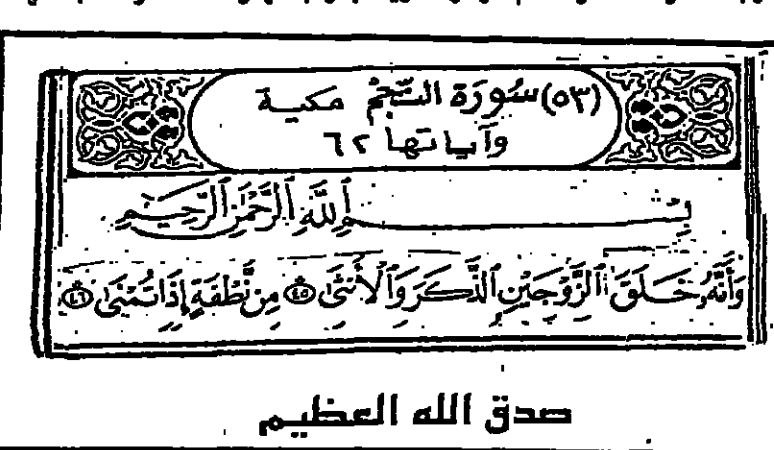 (٥٣) سُورَة النَّجْمِ مكية
وآياتها ٦٢
بِسْمِ ٱللَّهِ ٱلرَّحْمَٰنِ ٱلرَّحِيمِ
وَأَنَّهُۥ خَلَقَ ٱلزَّوْجَيْنِ ٱلذَّكَرَ وَٱلْأُنثَىٰ ٤٥ مِن نُّطْفَةٍ إِذَا تُمْنَىٰ ٤٦
صدق الله العظيم